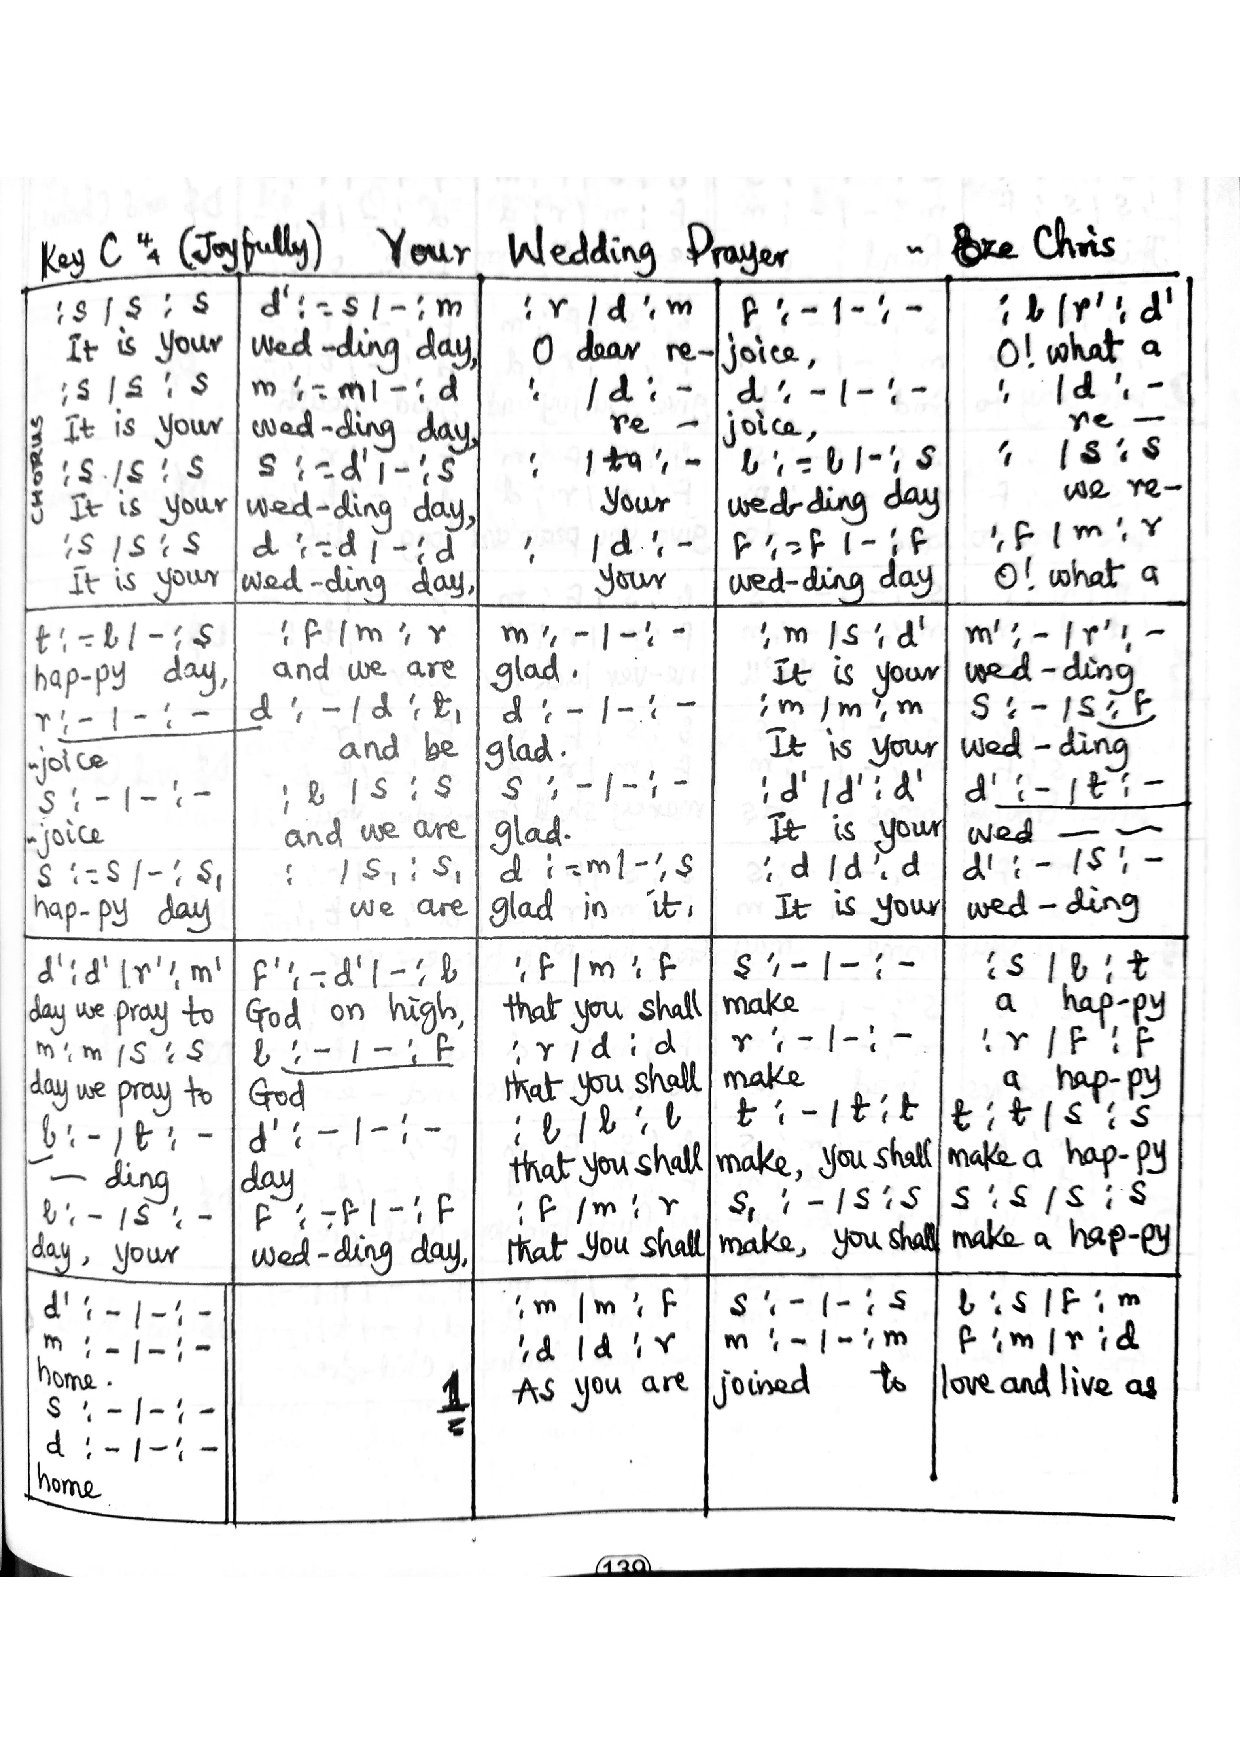 Key C 4/4 (Joyfully) Your Wedding Prayer ~ Eze Chris
CHORUS
:s / s : s | d' : =s / - : m | : r / d : m | f : - / - : - | : l / r' : d'
It is your | wed-ding day, | O dear re- | joice, | O! what a
:s / s : s | m : =m / - : d | : / d : - | d : - / - : - | : / d : -
It is your | wed-ding day, | re - | joice, | re —
:s / s : s | s : =d' / - : s | : / ta : - | l : =l / - : s | : / s : s
It is your | wed-ding day, | your | wed-ding day | we re-
:s / s : s | d : =d / - : d | : / d : - | f : =f / - : f | : f / m : r
It is your | wed-ding day, | your | wed-ding day | O! what a
t : =l / - : s | : f / m : r | m : - / - : - | : m / s : d' | m' : - / r' : -
hap-py day, | and we are | glad. | It is your | wed-ding
r : - / - : - | d : - / d : t, | d : - / - : - | : m / m : m | s : - / s : f
-joice | and be | glad. | It is your | wed-ding
s : - / - : - | : l / s : s | s : - / - : - | : d' / d' : d' | d' : - / t : -
-joice | and we are | glad. | It is your | wed — —
s : =s / - : s, | : / s, : s, | d : =m / - : s | : d / d : d | d' : - / s : -
hap-py day | we are | glad in it, | It is your | wed-ding
d' : d' / r' : m' | f' : =d' / - : l | : f / m : f | s : - / - : - | : s / l : t
day we pray to | God on high, | that you shall | make | a hap-py
m : m / s : s | l : - / - : f | : r / d : d | r : - / - : - | : r / f : f
day we pray to | God | that you shall | make | a hap-py
l : - / t : - | d' : - / - : - | : l / l : l | t : - / t : t | t : t / s : s
— ding | day | that you shall | make, you shall | make a hap-py
l : - / s : - | f : =f / - : f | : f / m : r | s, : - / s : s | s : s / s : s
day, your | wed-ding day, | that you shall | make, you shall | make a hap-py
d' : - / - : - | | : m / m : f | s : - / - : s | l : s / f : m
m : - / - : - | 1 | : d / d : r | m : - / - : m | f : m / r : d
home. | | As you are | joined to | love and live as
s : - / - : -
d : - / - : -
home
139